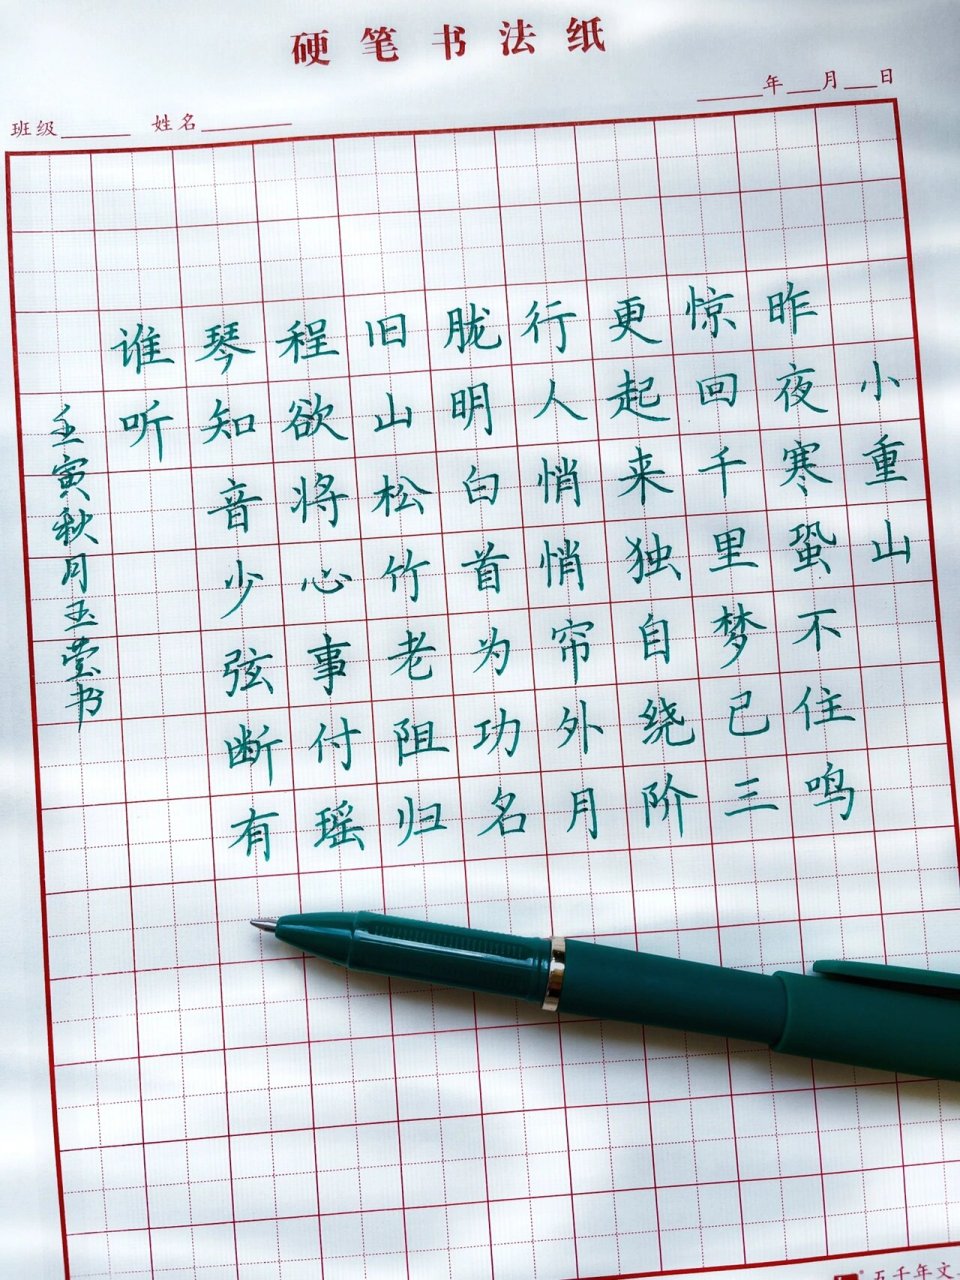 硬笔书法纸
班级 姓名 年 月 日
小重山
昨夜寒蛩不住鸣
惊回千里梦已三
更起来独自绕阶
行人悄悄帘外月
胧明白首为功名
旧山松竹老阻归
程欲将心事付瑶
琴知音少弦断有
谁听
壬寅秋月玉莹书
五千年文